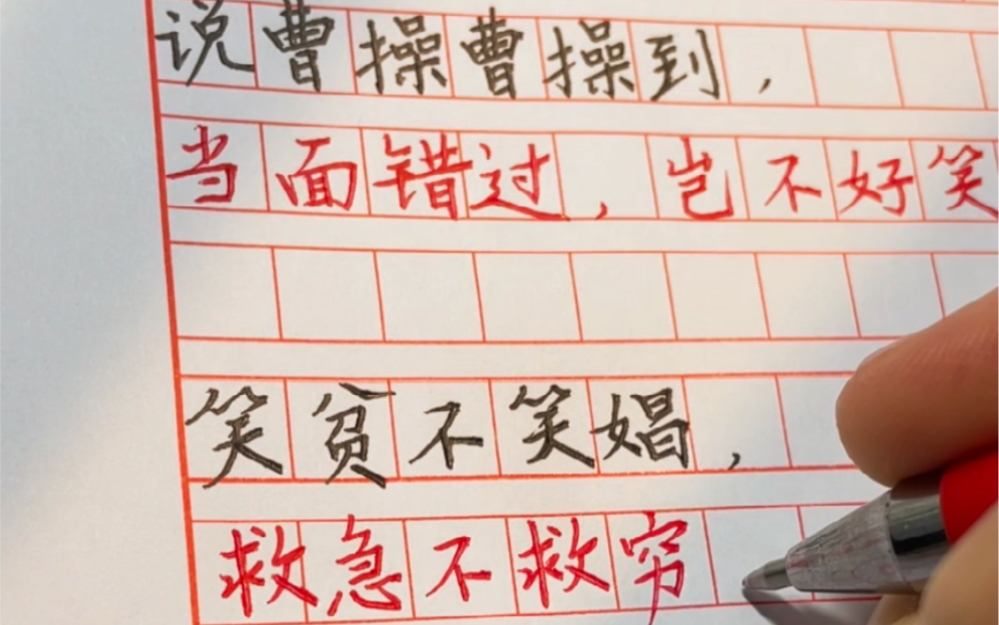 说曹操曹操到，
当面错过，岂不好笑
笑贫不笑娼，
救急不救穷